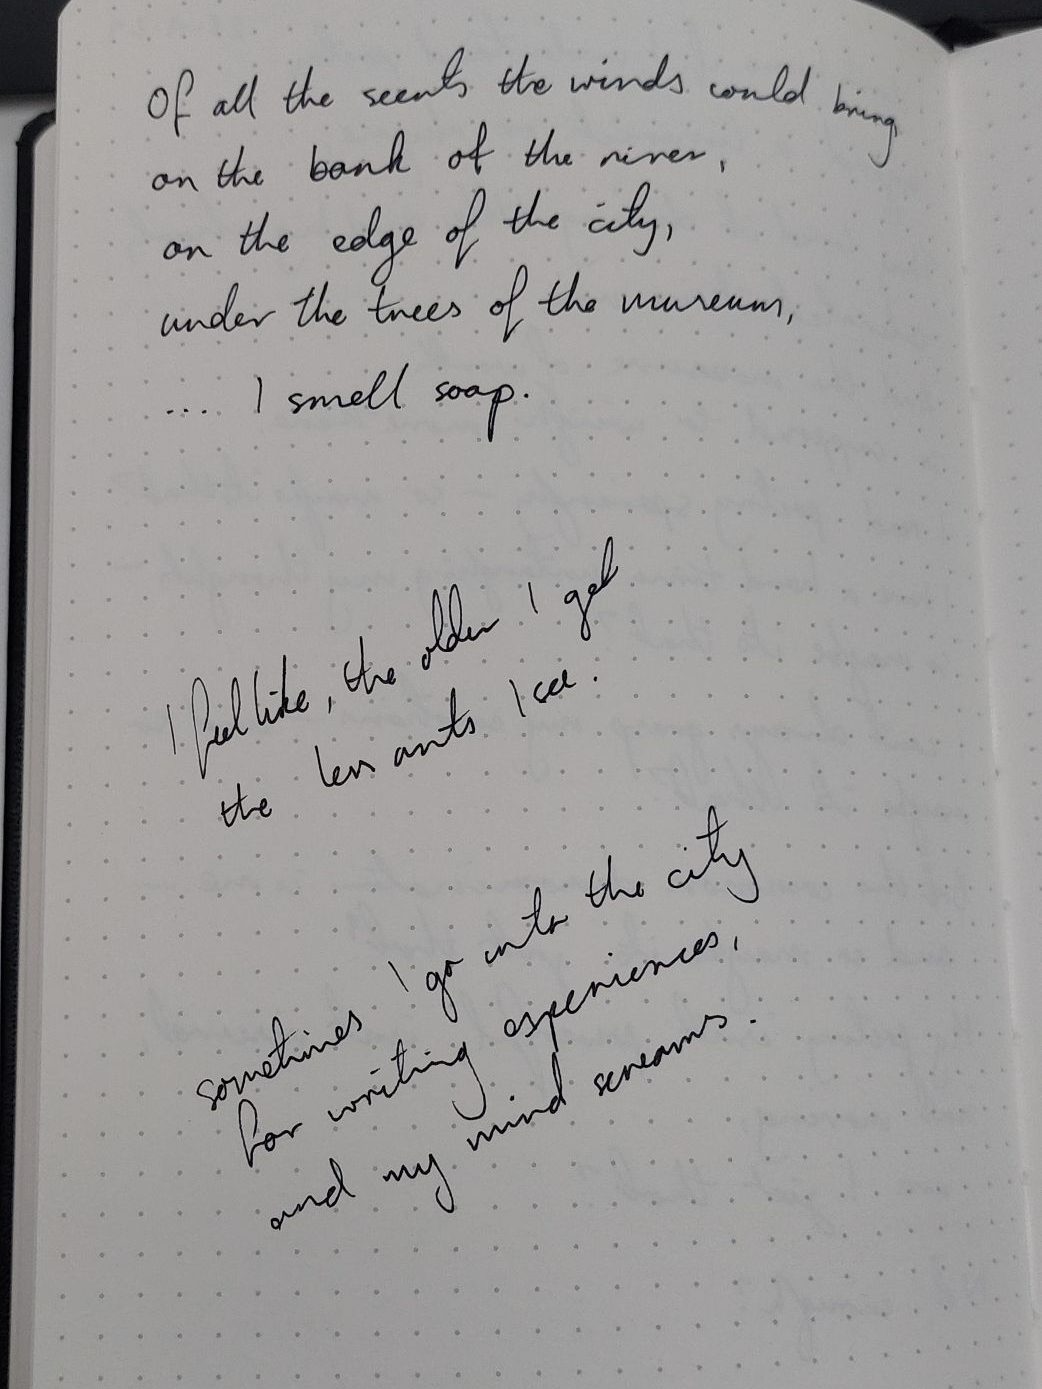 Of all the scents the winds could bring,
on the bank of the river,
on the edge of the city,
under the trees of the museum,
... I smell soap.
I feel like, the older I get
the less ants I see.
sometimes I go into the city
for writing experiences,
and my mind screams.